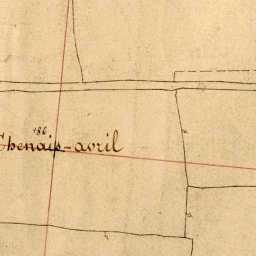 186
Chenais-avril